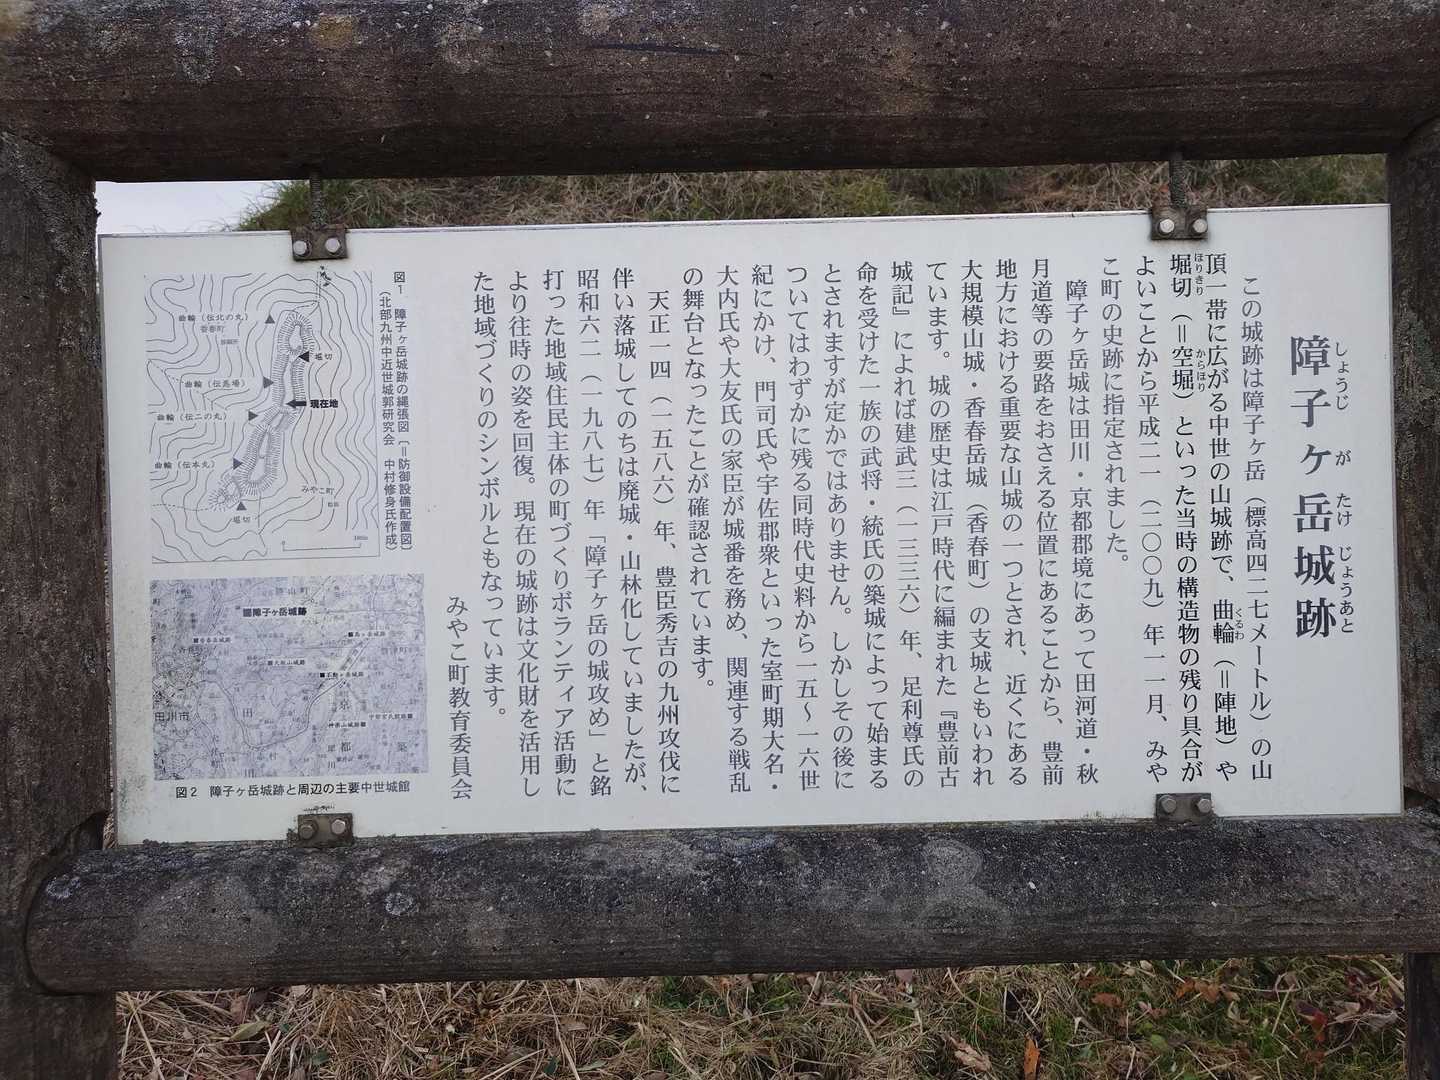 障子ヶ岳城跡
しょうじ が たけ じょうあと
この城跡は障子ヶ岳（標高四二七メートル）の山
頂一帯に広がる中世の山城跡で、曲輪（＝陣地）や
くるわ
堀切（＝空堀）といった当時の構造物の残り具合が
ほりきり からほり
よいことから平成二一（二〇〇九）年一一月、みや
こ町の史跡に指定されました。
障子ヶ岳城は田川・京都郡境にあって田河道・秋
月道等の要路をおさえる位置にあることから、豊前
地方における重要な山城の一つとされ、近くにある
大規模山城・香春岳城（香春町）の支城ともいわれ
ています。城の歴史は江戸時代に編まれた『豊前古
城記』によれば建武三（一三三六）年、足利尊氏の
命を受けた一族の武将・統氏の築城によって始まる
とされますが定かではありません。しかしその後に
ついてはわずかに残る同時代史料から一五～一六世
紀にかけ、門司氏や宇佐郡衆といった室町期大名・
大内氏や大友氏の家臣が城番を務め、関連する戦乱
の舞台となったことが確認されています。
天正一四（一五八六）年、豊臣秀吉の九州攻伐に
伴い落城してのちは廃城・山林化していましたが、
昭和六二（一九八七）年「障子ヶ岳の城攻め」と銘
打った地域住民主体の町づくりボランティア活動に
より往時の姿を回復。現在の城跡は文化財を活用し
た地域づくりのシンボルともなっています。
みやこ町教育委員会
図1 障子ヶ岳城跡の縄張図（＝防御設備配置図）
（北部九州中近世城郭研究会 中村修身氏作成）
曲輪（伝北の丸）
香春町
堀切
曲輪（伝馬場）
現在地
曲輪（伝二の丸）
曲輪（伝本丸）
みやこ町
堀切
100m
障子ヶ岳城跡
田川市
図2 障子ヶ岳城跡と周辺の主要中世城館